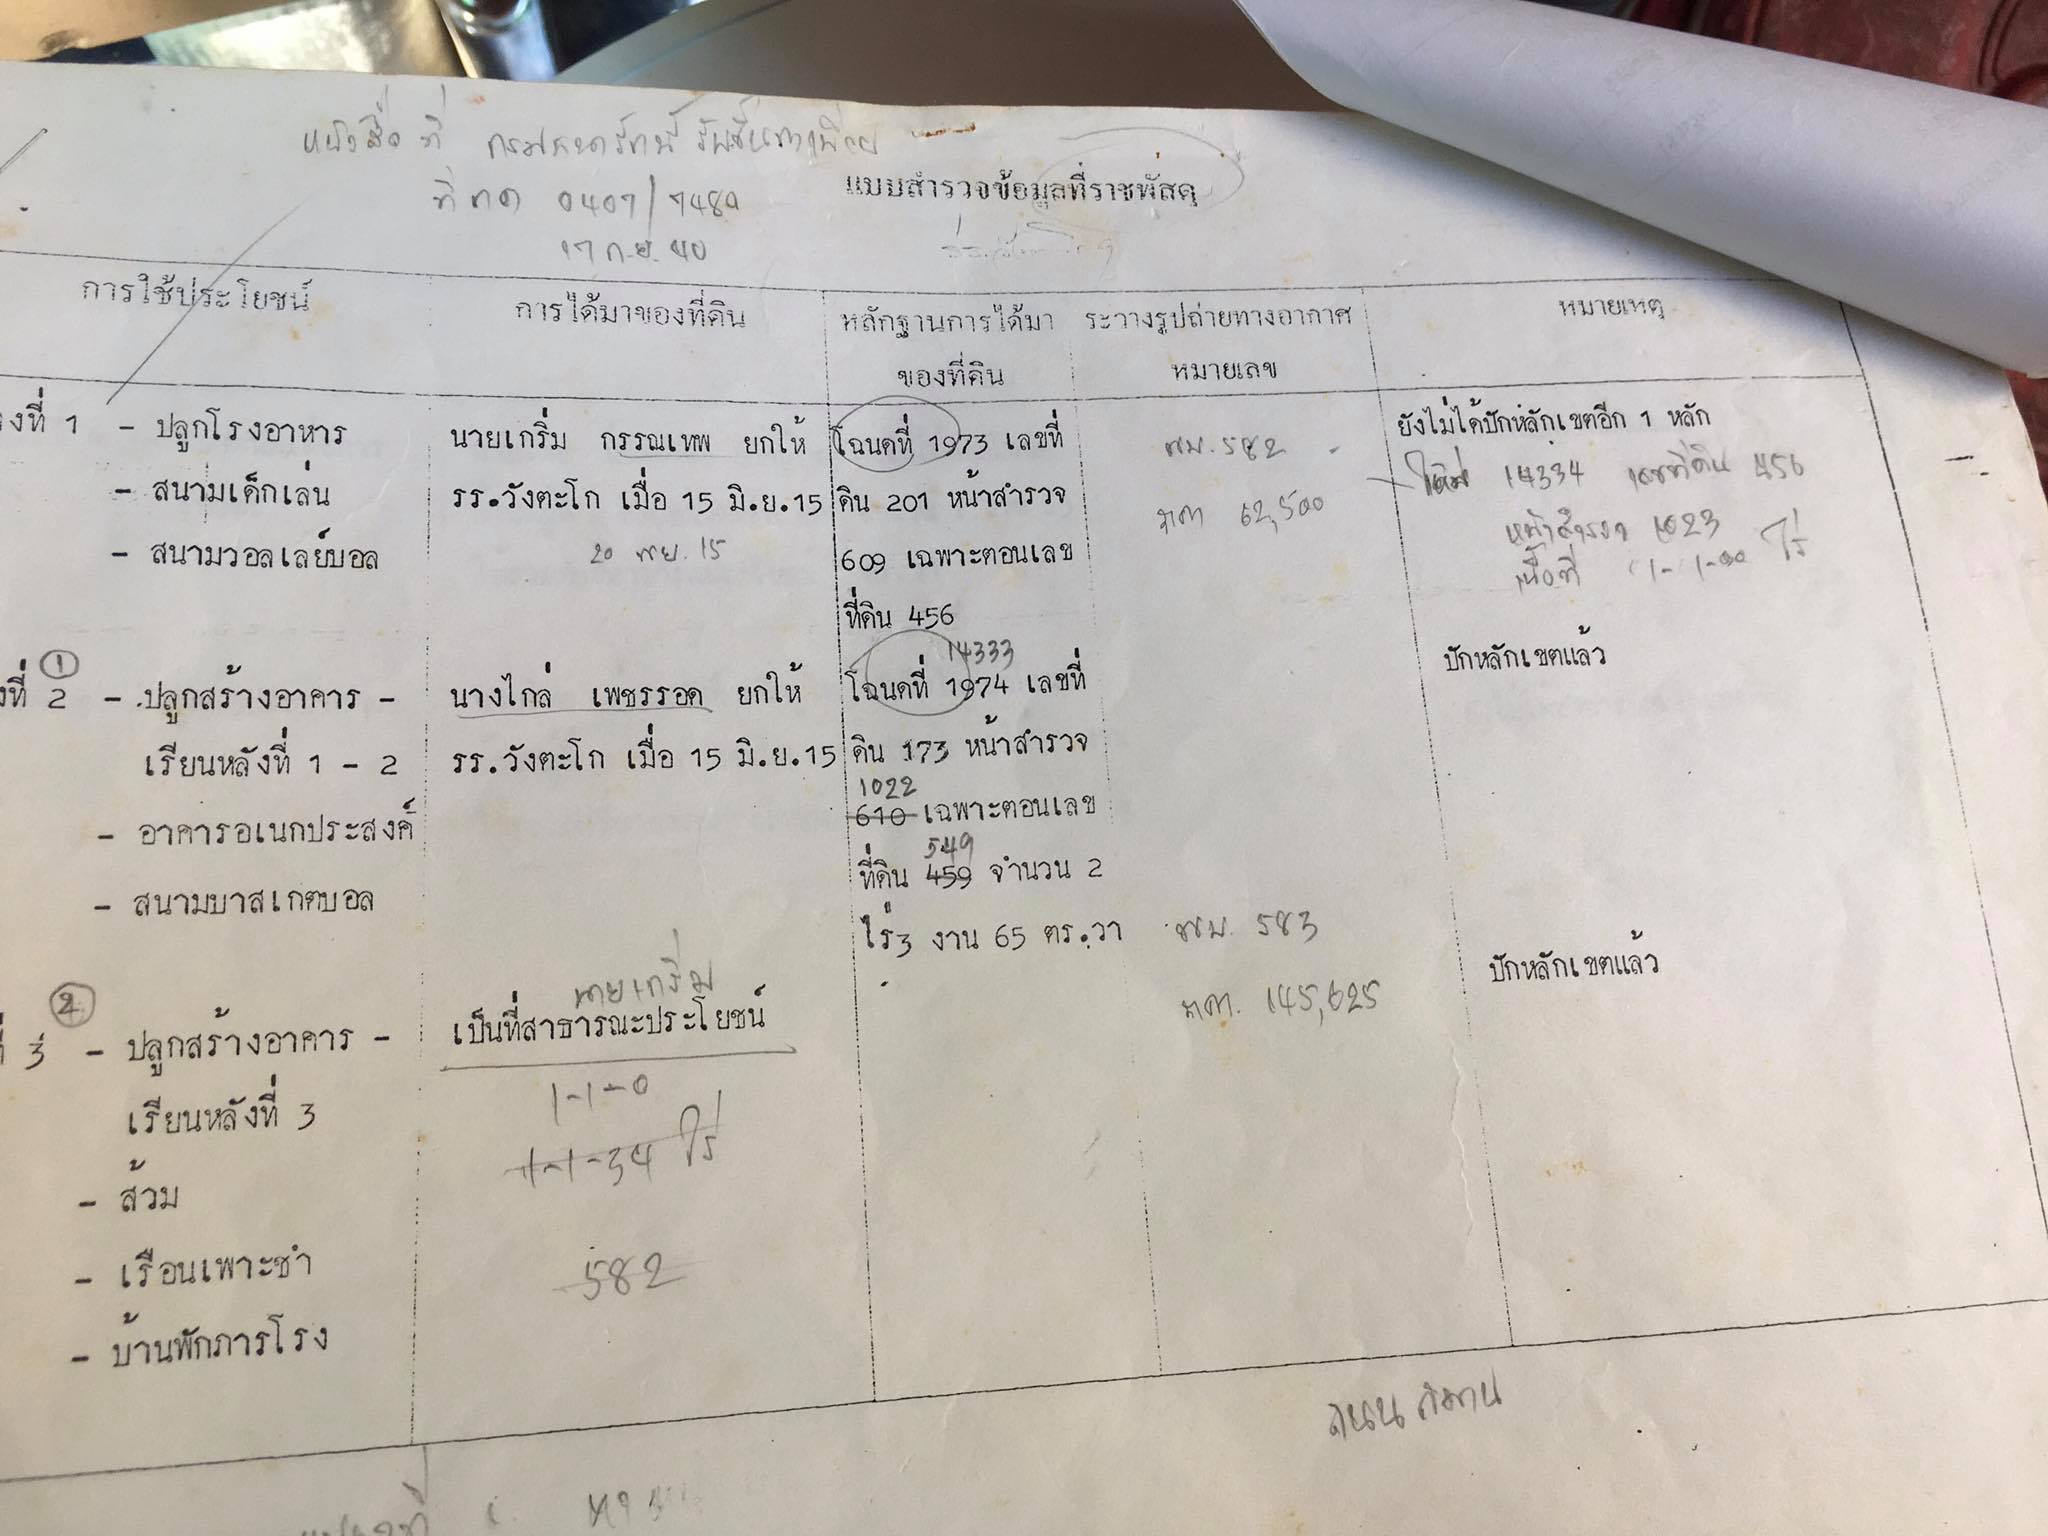 หนังสือ ที่ กรมธนารักษ์ รับขึ้นทะเบียน
ที่ กค 0407/7480
17 ก.ย. 40
แบบสำรวจข้อมูลที่ราชพัสดุ
การใช้ประโยชน์ การได้มาของที่ดิน หลักฐานการได้มา ระวางรูปถ่ายทางอากาศ หมายเหตุ
ของที่ดิน หมายเลข
งที่ 1 - ปลูกโรงอาหาร นายเกริ่ม กรรณเทพ ยกให้ โฉนดที่ 1973 เลขที่ พบ. 582 ยังไม่ได้ปักหลักเขตอีก 1 หลัก
- สนามเด็กเล่น รร.วังตะโก เมื่อ 15 มิ.ย.15 ดิน 201 หน้าสำรวจ 62,500 ใหม่ 14334 เลขที่ดิน 456
- สนามวอลเลย์บอล 20 พย. 15 609 เฉพาะตอนเลข หน้าสำรวจ 1023
ที่ดิน 456 เนื้อที่ 1-1-00 ไร่
1 14333
งที่ 2 - ปลูกสร้างอาคาร - นางไกล่ เพชรรอด ยกให้ โฉนดที่ 1974 เลขที่ ปักหลักเขตแล้ว
เรียนหลังที่ 1 - 2 รร.วังตะโก เมื่อ 15 มิ.ย.15 ดิน 173 หน้าสำรวจ
1022
- อาคารอเนกประสงค์ 610 เฉพาะตอนเลข
549
- สนามบาสเกตบอล ที่ดิน 459 จำนวน 2
ไร่3 งาน 65 ตร.วา พบ. 583
2 นายเกริ่ม
ที่ 3 - ปลูกสร้างอาคาร - เป็นที่สาธารณะประโยชน์ 145,625 ปักหลักเขตแล้ว
เรียนหลังที่ 3 1-1-0
- ส้วม 1-1-34 ไร่
- เรือนเพาะชำ 582
- บ้านพักภารโรง